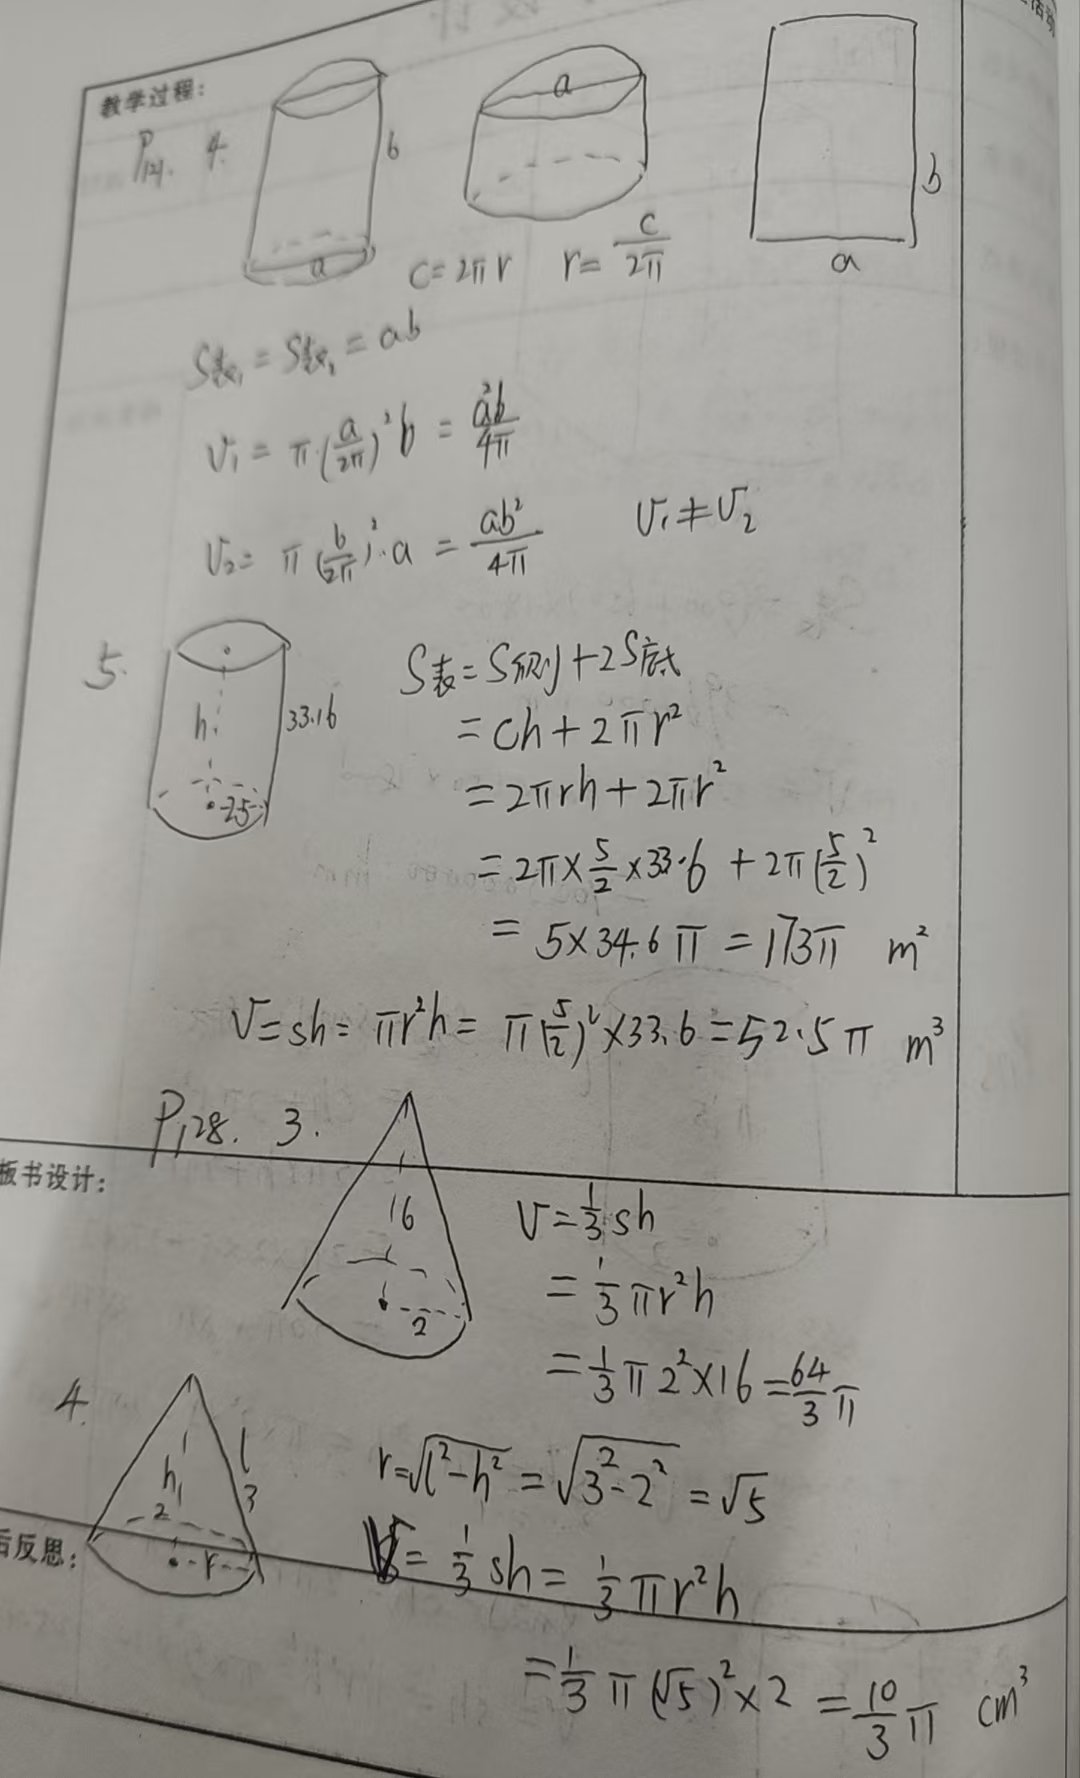 教学过程:
P121. 4.
b
a
a
b
a
C=2πr r=\frac{C}{2π}
S表₁=S表₂=ab
V₁=π(\frac{a}{2π})²b=\frac{a²b}{4π}
V₂=π(\frac{b}{2π})²·a=\frac{ab²}{4π} V₁≠V₂
5.
h
33.16
2.5
S表=S侧+2S底
=Ch+2πr²
=2πrh+2πr²
=2π×\frac{5}{2}×33.6+2π(\frac{5}{2})²
=5×34.6π=173π m²
V=sh=πr²h=π(\frac{5}{2})²×33.6=52.5π m³
P128. 3.
板书设计:
16
2
V=\frac{1}{3}sh
=\frac{1}{3}πr²h
=\frac{1}{3}π2²×16=\frac{64}{3}π
4.
h
2
l
3
r
r=√(l²-h²)=√(3²-2²)=√5
后反思:
V=\frac{1}{3}sh=\frac{1}{3}πr²h
=\frac{1}{3}π(√5)²×2=\frac{10}{3}π cm³